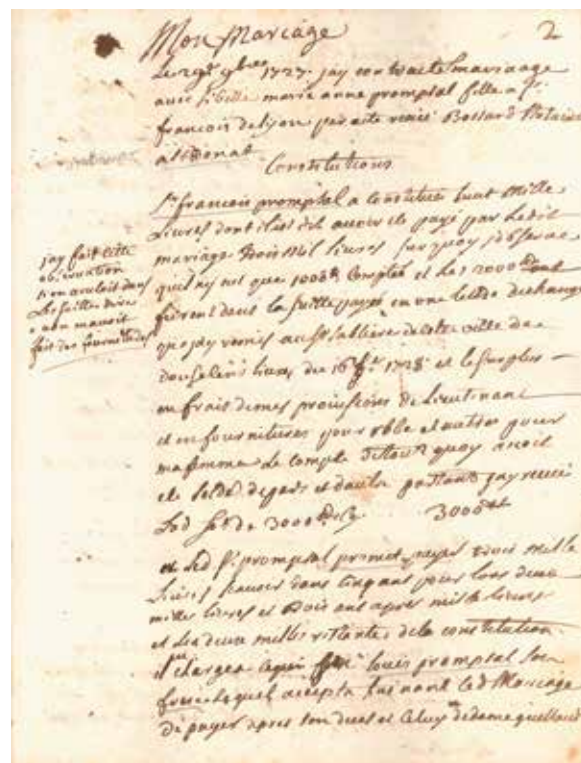 Mon Mariage
2
Le 29e 9bre 1727. jay contracté mariage
avec sibille marie anne promptal fille a sr.
francois de lyon par acte receu Bossard Notaire
a st Donat
Constitutions
Sr. francois promptal a constitué huit mille
Livres dont il est dit avoir été payé par ledit
mariage trois mil livres surquoy jobserve
quil ny eut que 1000 Comptés et les 2000
furent dans la suitte payés en une lettre de change
que jay remis au sr sablière de cette ville de
livres du 16 1728 et le surplus
en frais de mes provisions de Lieutenant
et en fournitures pour robe et autres pour
ma femme Le compte quoy
et partant jay receu
de 3000 3000
et led sr. promptal promet payer trois mille
Livres scavoir dans cinq ans pour lors deux
mille livres et trois ans apres mille livres
et les deux milles restantes de la constitution
il chargea louis promptal son
frere lequel accepta suivant led Mariage
de payer apres son deces et celuy de dame guillaud
jay fait cette
observation
si on vouloit dans
les suittes dire
qu'on mauroit
fait des fournitures